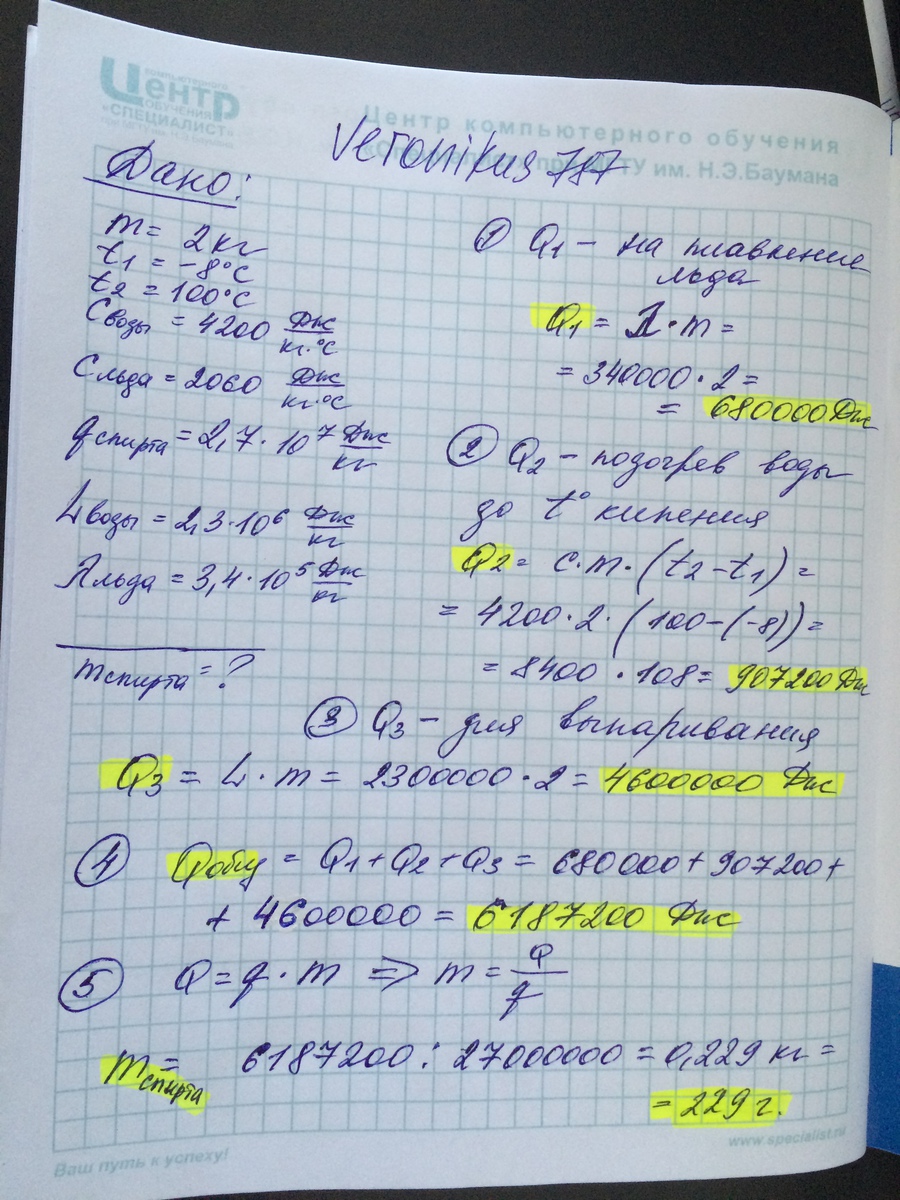 компьютерного
Центр
обучения
«СПЕЦИАЛИСТ»
при МГТУ им. Н.Э.Баумана
Центр компьютерного обучения
«Специалист» при МГТУ им. Н.Э.Баумана
Veronikus 787
Дано:
m = 2 кг
t1 = -8°C
t2 = 100°C
Cводы = 4200 Дж/кг·°C
Cльда = 2060 Дж/кг·°C
qспирта = 2,7·10⁷ Дж/кг
Lводы = 2,3·10⁶ Дж/кг
λльда = 3,4·10⁵ Дж/кг
mспирта = ?
① Q1 – на плавление
льда
Q1 = λ·m =
= 340000·2 =
= 680000 Дж
② Q2 – подогрев воды
до t° кипения
Q2 = c·m·(t2-t1) =
= 4200·2·(100-(-8)) =
= 8400·108 = 907200 Дж
③ Q3 – для выпаривания
Q3 = L·m = 2300000·2 = 4600000 Дж
④ Qобщ = Q1+Q2+Q3 = 680000+907200+
+ 4600000 = 6187200 Дж
⑤ Q = q·m ⇒ m = Q/q
mспирта = 6187200 : 27000000 = 0,229 кг =
= 229 г.
Ваш путь к успеху!
www.specialist.ru